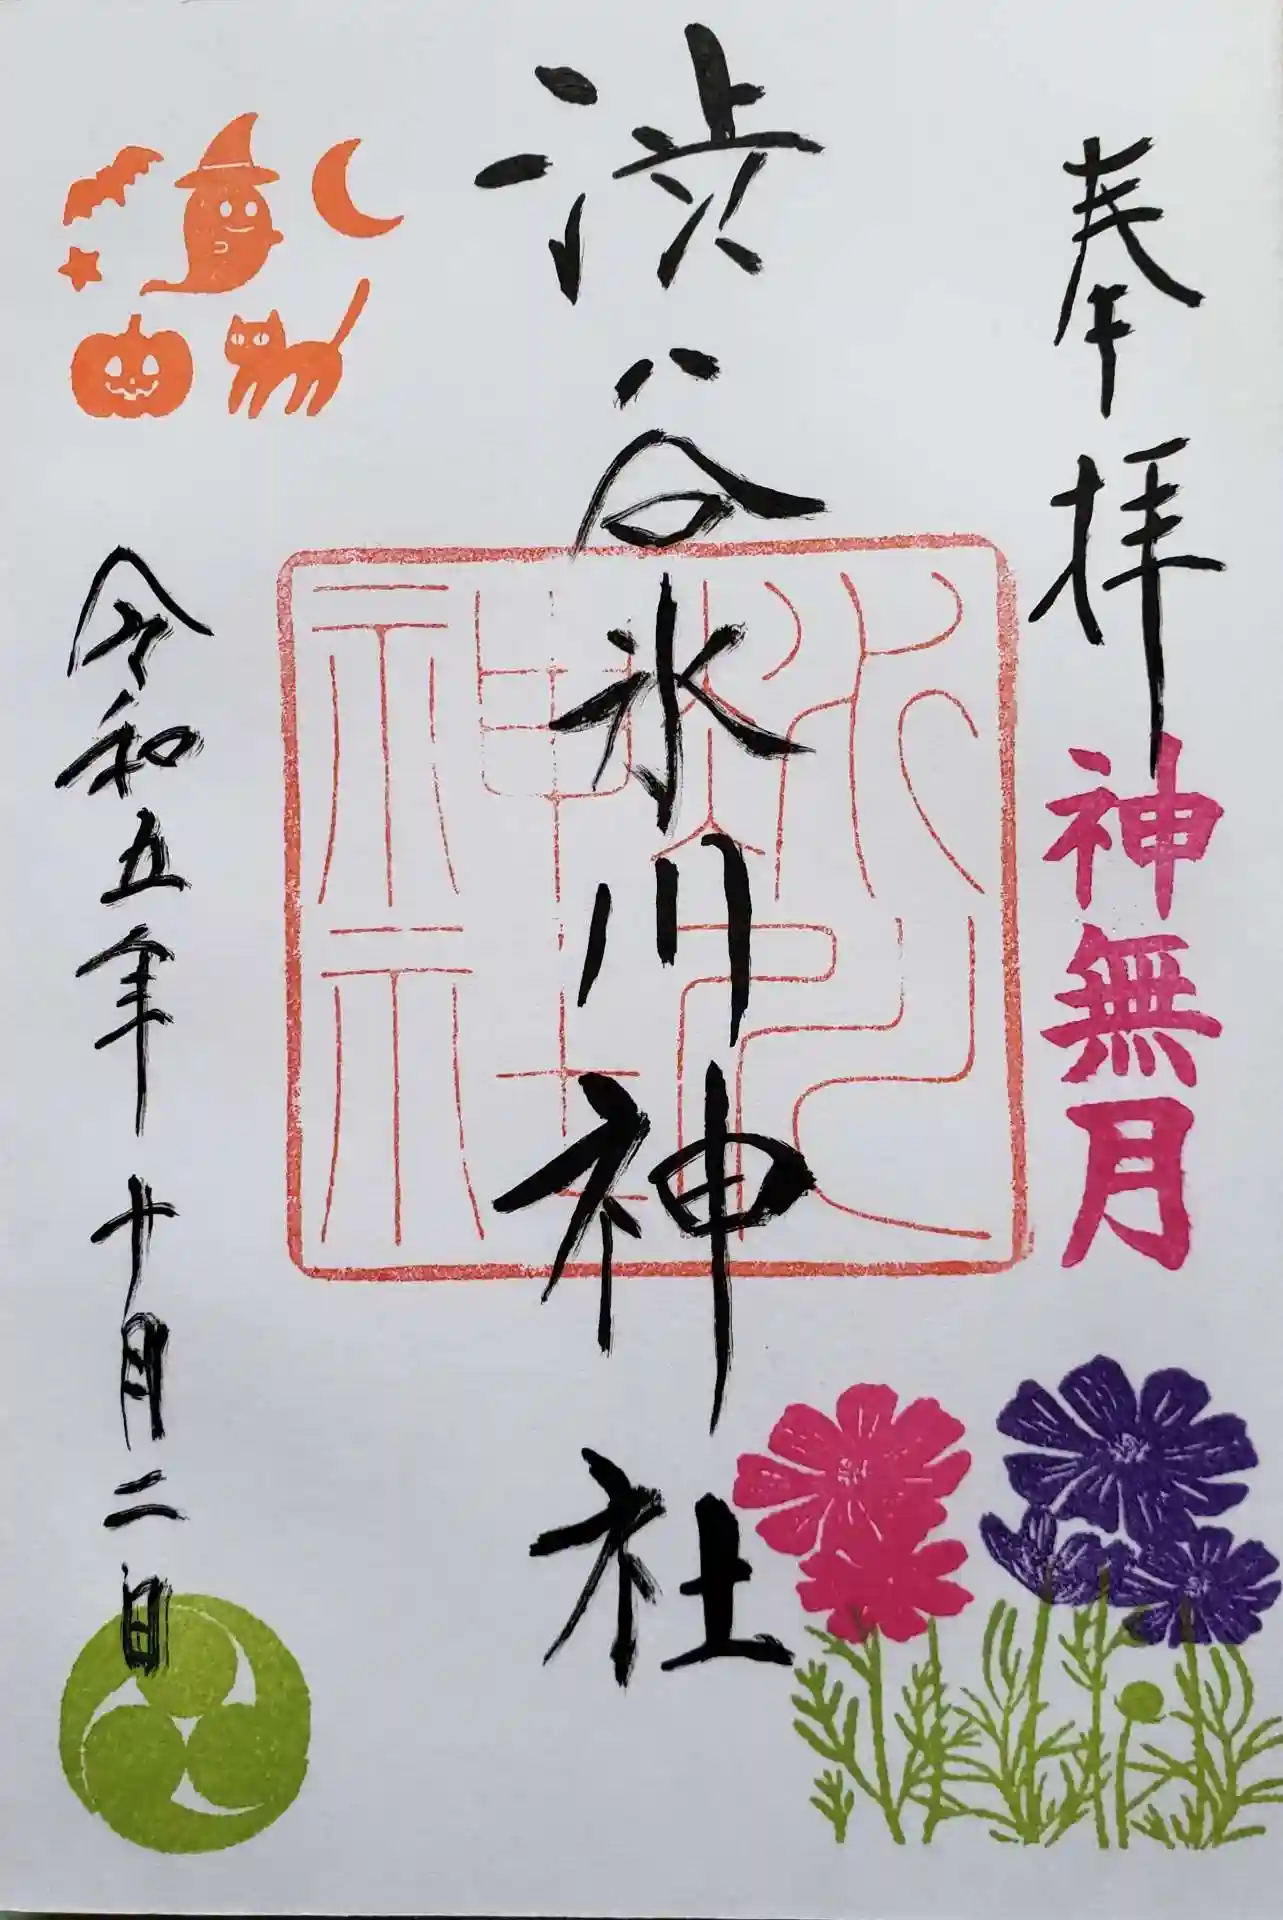 奉拝
神無月
渋谷氷川神社
氷川神社
令和五年十月二日